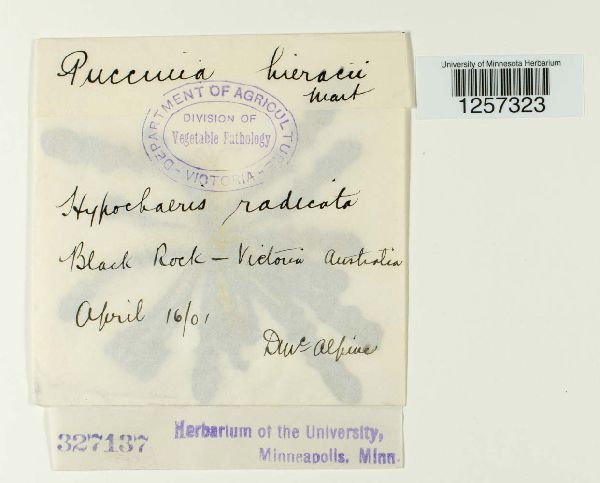 Puccinia hieracii
Mart
DEPARTMENT OF AGRICULTURE
DIVISION OF
Vegetable Pathology
- VICTORIA -
Hypochaeris radicata
Black Rock – Victoria Australia
April 16/01
D McAlpine
327137
Herbarium of the University,
Minneapolis, Minn.
University of Minnesota Herbarium
1257323